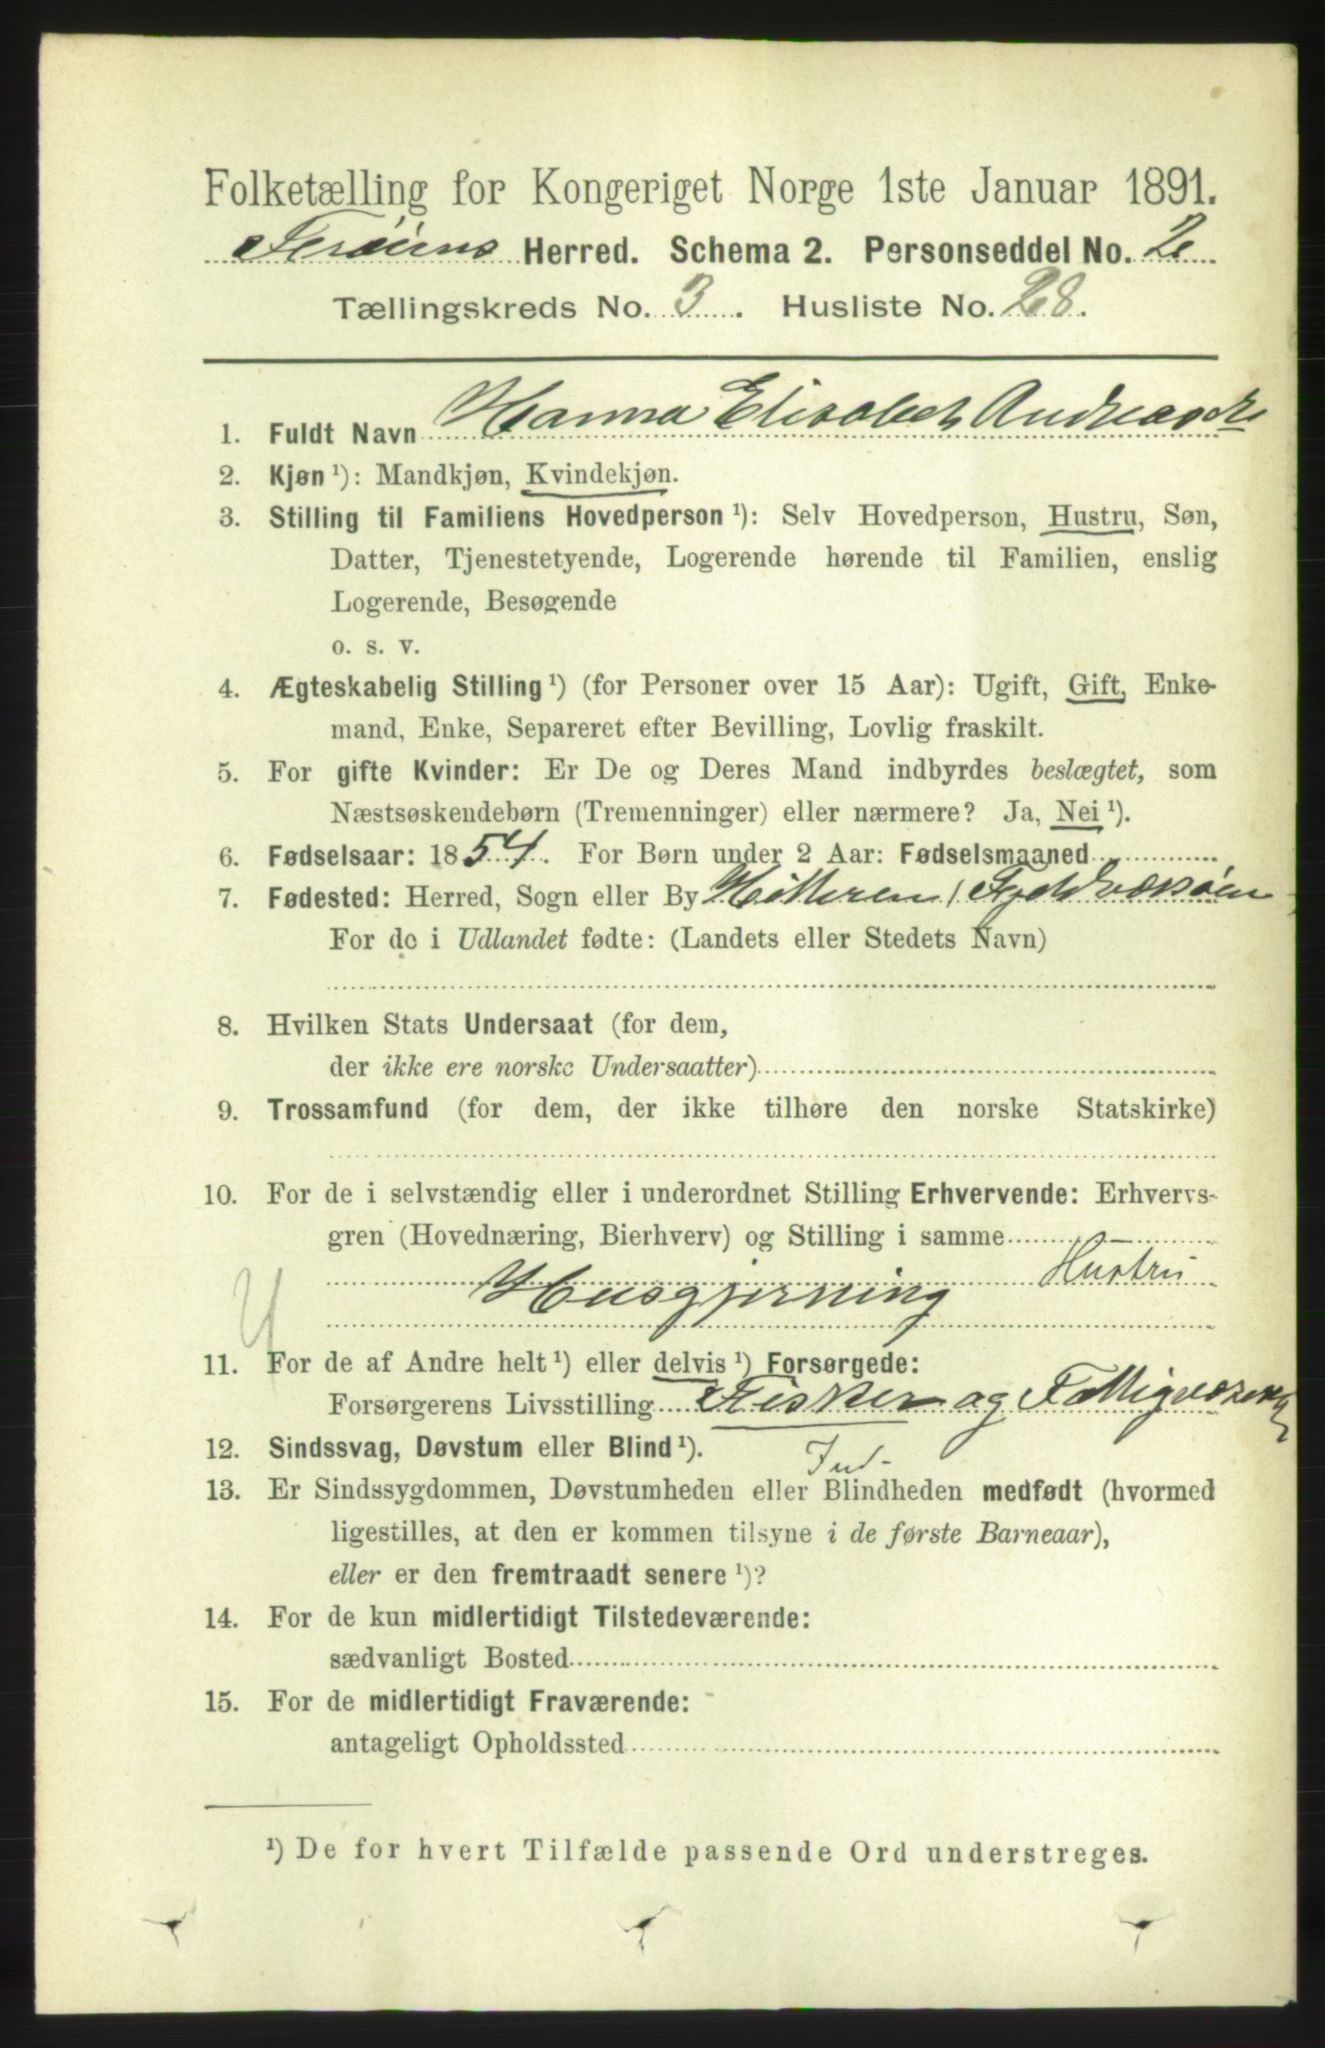 Folketælling for Kongeriget Norge 1ste Januar 1891.
Frøiens Herred. Schema 2. Personseddel No. 2
Tællingskreds No. 3. Husliste No. 28.
1. Fuldt Navn Hanna Elisabet Andreasdtr
2. Kjøn ¹): Mandkjøn, Kvindekjøn.
3. Stilling til Familiens Hovedperson ¹): Selv Hovedperson, Hustru, Søn,
Datter, Tjenestetyende, Logerende hørende til Familien, enslig
Logerende, Besøgende
o. s. v.
4. Ægteskabelig Stilling ¹) (for Personer over 15 Aar): Ugift, Gift, Enke-
mand, Enke, Separeret efter Bevilling, Lovlig fraskilt.
5. For gifte Kvinder: Er De og Deres Mand indbyrdes beslægtet, som
Næstsøskendebørn (Tremenninger) eller nærmere? Ja, Nei ¹).
6. Fødselsaar: 1854. For Børn under 2 Aar: Fødselsmaaned
7. Fødested: Herred, Sogn eller By Hitteren / Fjeldværsøen
For de i Udlandet fødte: (Landets eller Stedets Navn)
8. Hvilken Stats Undersaat (for dem,
der ikke ere norske Undersaatter)
9. Trossamfund (for dem, der ikke tilhøre den norske Statskirke)
10. For de i selvstændig eller i underordnet Stilling Erhvervende: Erhvervs-
gren (Hovednæring, Bierhverv) og Stilling i samme
Hustru
Husgjerning
11. For de af Andre helt ¹) eller delvis ¹) Forsørgede:
Forsørgerens Livsstilling Fisker og
12. Sindssvag, Døvstum eller Blind ¹).
13. Er Sindssygdommen, Døvstumheden eller Blindheden medfødt (hvormed
ligestilles, at den er kommen tilsyne i de første Barneaar),
eller er den fremtraadt senere ¹)?
14. For de kun midlertidigt Tilstedeværende:
sædvanligt Bosted
15. For de midlertidigt Fraværende:
antageligt Opholdssted
¹) De for hvert Tilfælde passende Ord understreges.